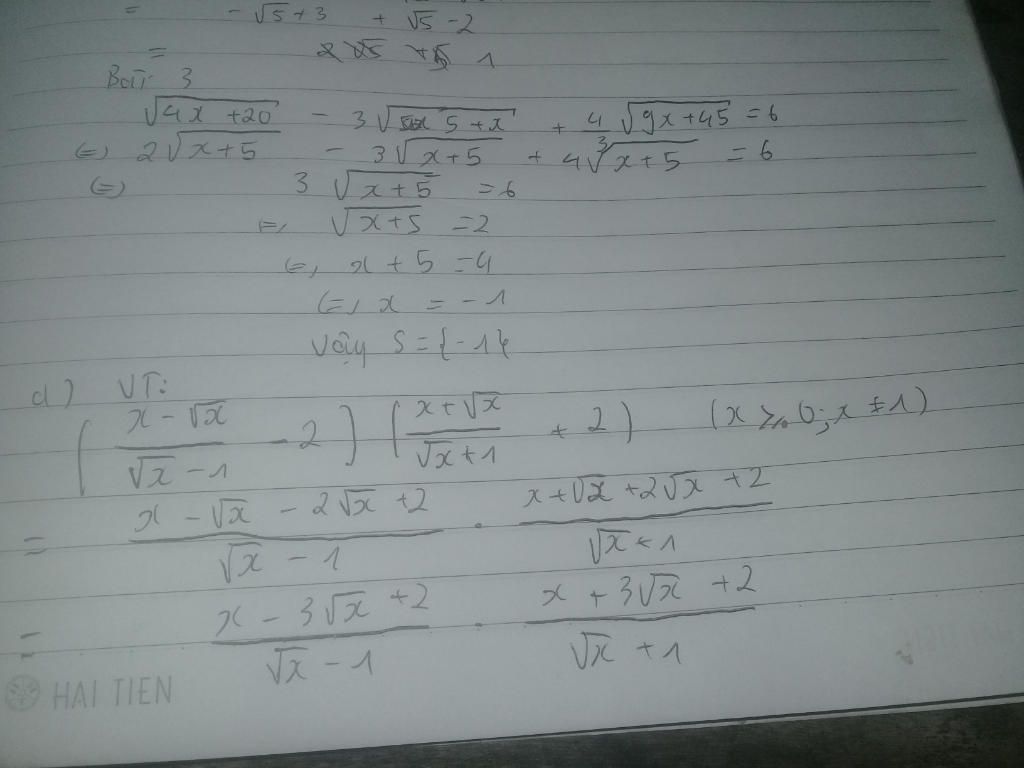 = -√5+3 + √5-2
= 1
Bài 3
√(4x+20) - 3√(5+x) + 4/3 √(9x+45) = 6
(=) 2√(x+5) - 3√(x+5) + 4√(x+5) = 6
(=) 3√(x+5) = 6
(=) √(x+5) = 2
(=) x + 5 = 4
(=) x = -1
Vậy S = {-1}
d) VT:
[(x-√x)/(√x-1) - 2] ((x+√x)/(√x+1) + 2) (x ≥ 0; x ≠ 1)
= (x - √x - 2√x + 2)/(√x - 1) . (x + √x + 2√x + 2)/(√x + 1)
= (x - 3√x + 2)/(√x - 1) . (x + 3√x + 2)/(√x + 1)
HAI TIEN